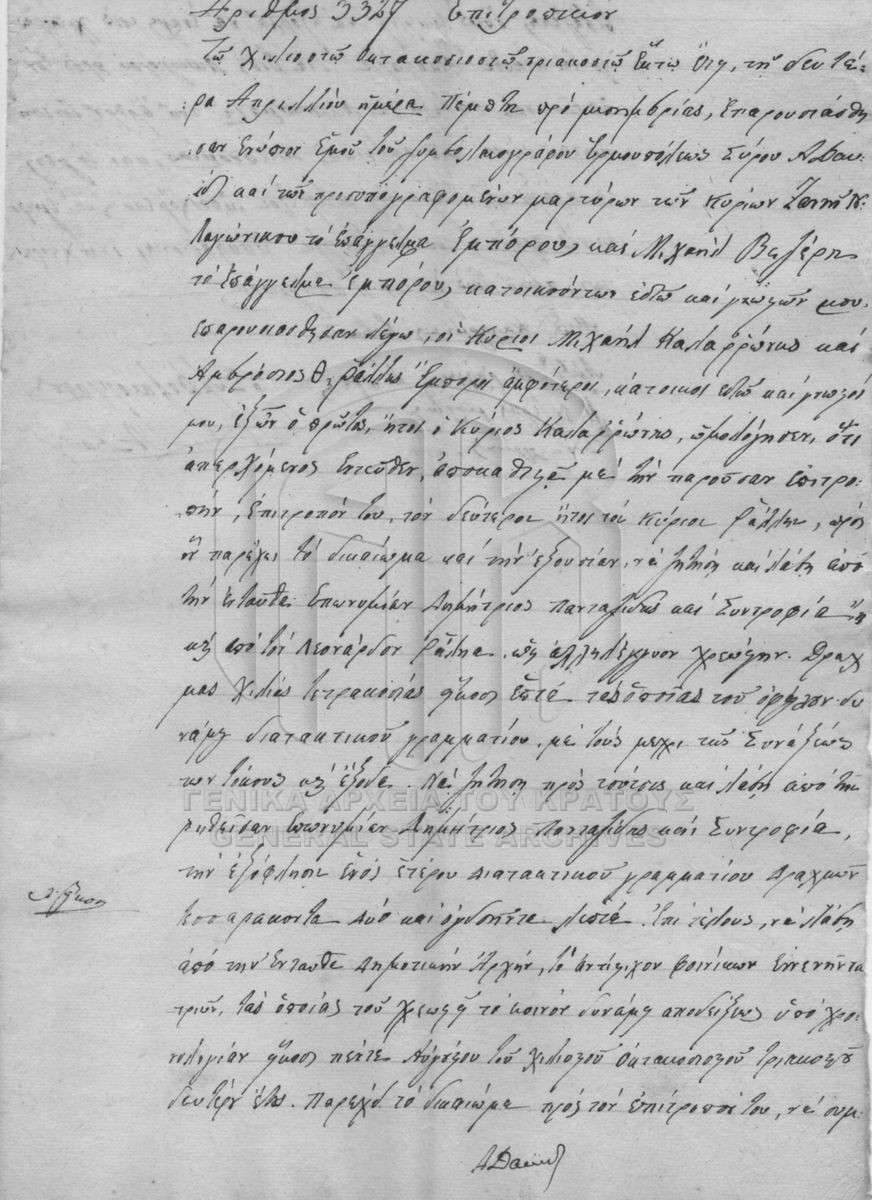 Αριθμος 3327 Επιτροπικον
Τῶ χιλιοστῶ οκτακοσιοστῶ τριακοστῶ ἕκτω ἔτη, τῆ δευτέ-
ρα Απριλλίου ημέρα Πέμπτη πρό μεσημβρίας, ἐπαρουσιάσθη
σαν ἐνώπιον ἐμοῦ τοῦ συμβολαιογράφου Ερμουπόλεως Σύρου Α Δαυ-
ὶδ καί τῶν προσυπογραφομένων μαρτύρων τῶν Κυρίων Ζαννῆ
το ἐπάγγελμα Εμπόρου, καί Μιχαήλ
το ἐπάγγελμα ἐμπόρου, κατοικούντων ἐδῶ καί γνωστῶν μου.
επαρουσιασθησαν λέγω, οἱ Κύριοι Μιχαήλ Καλαῤῥώνης καί
Αμβρόσιος Θ. Ράλλης Ἔμποροι ἀμφότεροι, κάτοικοι εδῶ καί γνωστοί
μου, ἐξ ὧν ὁ πρῶτος, ἤτοι ὁ Κύριος Καλαῤῥώνης, ὡμολόγησεν, ὅτι
ἀπερχόμενος ἐντεῦθεν, ἀποκαθιστᾶ μέ τὴν παροῦσαν ἐπιτρο-
πήν, ἐπίτροπόν του, τόν δεύτερον ἤτοι τόν Κύριον Ράλλην, πρός
ὅν παρέχει τό δικαίωμα καί τὴν ἐξουσίαν, νά ζητήση καί λάβη ἀπό
τήν ἐνταῦθα Επωνυμίαν Δημήτριος Πανταζίδης καί Συντροφία ἤ
καί ἀπό τόν Λεονάρδον Ράλλην ὡς ἀλληλέγγυον χρεώστην. Δραχ
μάς χιλίας τετρακοσίας εἴκοσι ἑπτά τάς ὁποίας τοῦ ὀφείλουν δυ
νάμη διατακτικοῦ γραμματίου, μέ τούς μεχρι τῆς Συνάξεώς
των τόκους καί ἔξοδα. Νά ζητήση πρός τούτοις καί λάβη ἀπό τήν
ρηθεῖσαν ἐπωνυμίαν Δημήτριος Πανταζίδης καί Συντροφία,
τήν ἐξόφλησιν ἑνός ἑτέρου διατακτικοῦ γραμματίου Δραχμῶν
τεσσαρακοντα δύο καί ὀγδοήντα λεπτά. Ἐπί τέλους, νά λάβη
ἀπό τήν ἐνταῦθα Δημοτικήν Ἀρχήν, τό ἀντίτιμον φοινίκων ἐννενήντα
τριῶν, τάς ὁποίας τοῦ χρεωστεῖ τό κοινόν δυνάμη αποδείξεως ὑπό χρο-
νολογίαν εἴκοσι πέντε Αὐγούστου τοῦ χιλιοστοῦ ὀκτακοσιοστοῦ τριακοστοῦ
δευτέρου ἔτους. Παρέχει τό δικαίωμα πρός τόν ἐπίτροπόν του, νά συμ-
Α Δαυίδ
ΓΕΝΙΚΑ ΑΡΧΕΙΑ ΤΟΥ ΚΡΑΤΟΥΣ
GENERAL STATE ARCHIVES